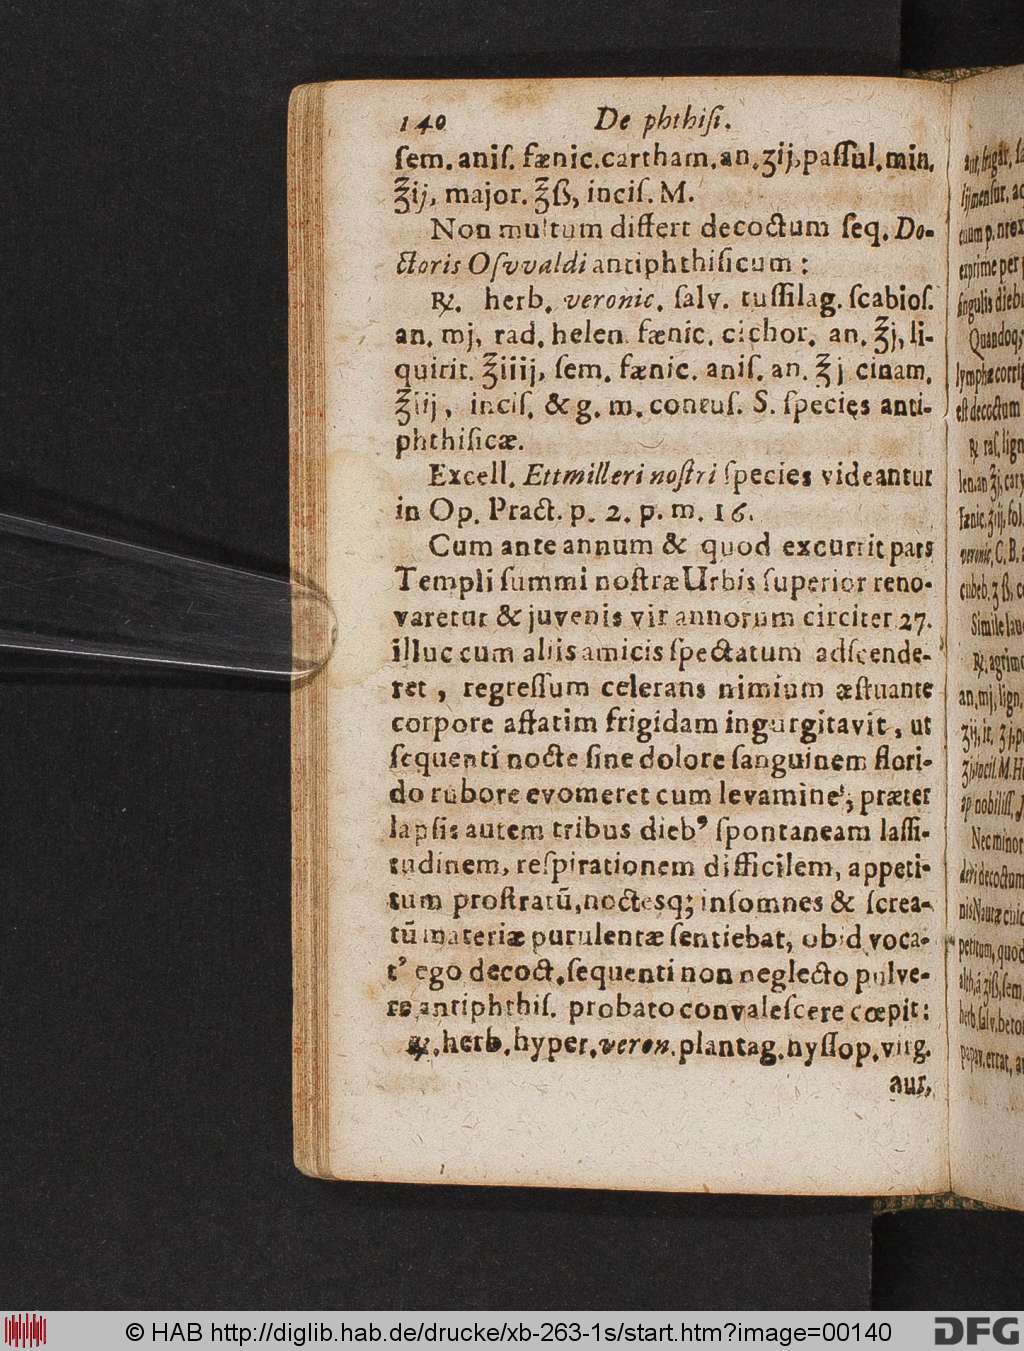 140 De phthiſi.
ſem. aniſ. fænic. cartham. an. ʒij, paſſul. min.
℥ij, major. ℥ß, inciſ. M.
Non multum differt decoctum ſeq. Do-
ctoris Oſvvaldi antiphthiſicum:
℞. herb. veronic. ſalv. tuſſilag. ſcabioſ.
an. mj, rad. helen. fænic. cichor. an. ℥j, li-
quirit. ℥iiij, ſem. fænic. aniſ. an. ℥j cinam.
℥iij, inciſ. & g. m. contuſ. S. ſpecies anti-
phthiſicæ.
Excell. Ettmilleri noſtri ſpecies videantur
in Op. Pract. p. 2. p. m. 16.
Cum ante annum & quod excurrit pars
Templi ſummi noſtræ Urbis ſuperior reno-
varetur & juvenis vir annorum circiter 27.
illuc cum aliis amicis ſpectatum adſcende-
ret, regreſſum celerans nimium æſtuante
corpore affatim frigidam ingurgitavit, ut
ſequenti nocte ſine dolore ſanguinem flori-
do rubore evomeret cum levamine, præter
lapſis autem tribus diebꝰ ſpontaneam laſſi-
tudinem, reſpirationem difficilem, appeti-
tum proſtratũ, noctesq; inſomnes & ſcrea-
tũ materiæ purulentæ ſentiebat, ob id voca-
tꝰ ego decoct. ſequenti non neglecto pulve-
re antiphthiſ. probato convaleſcere cœpit:
℞. herb. hyper. veron. plantag. hyſſop. virg.
aur,
© HAB http://diglib.hab.de/drucke/xb-263-1s/start.htm?image=00140
DFG